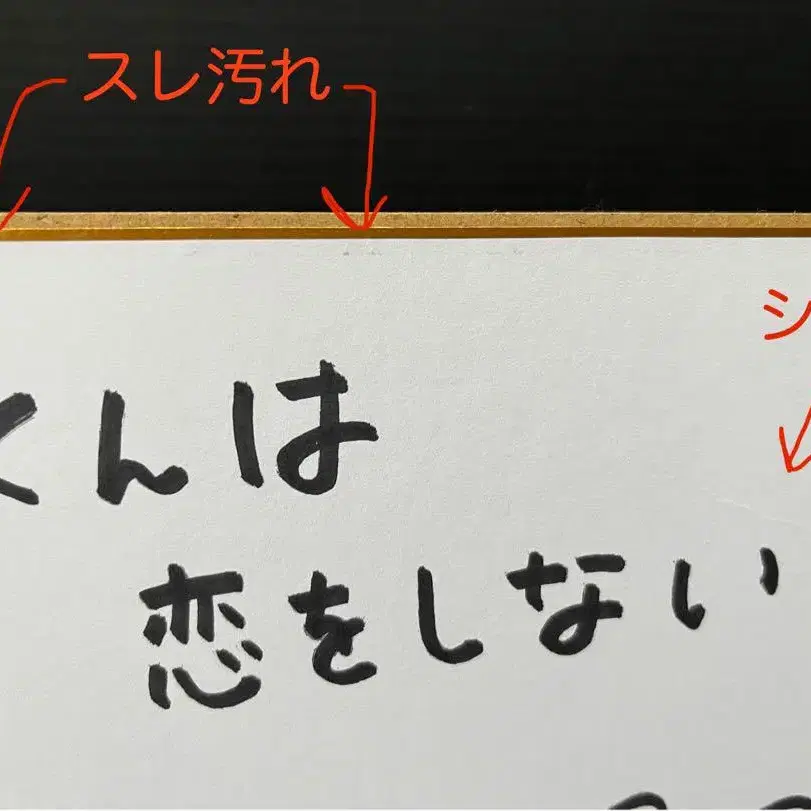 スレ汚れ
シ
くんは
恋をしない